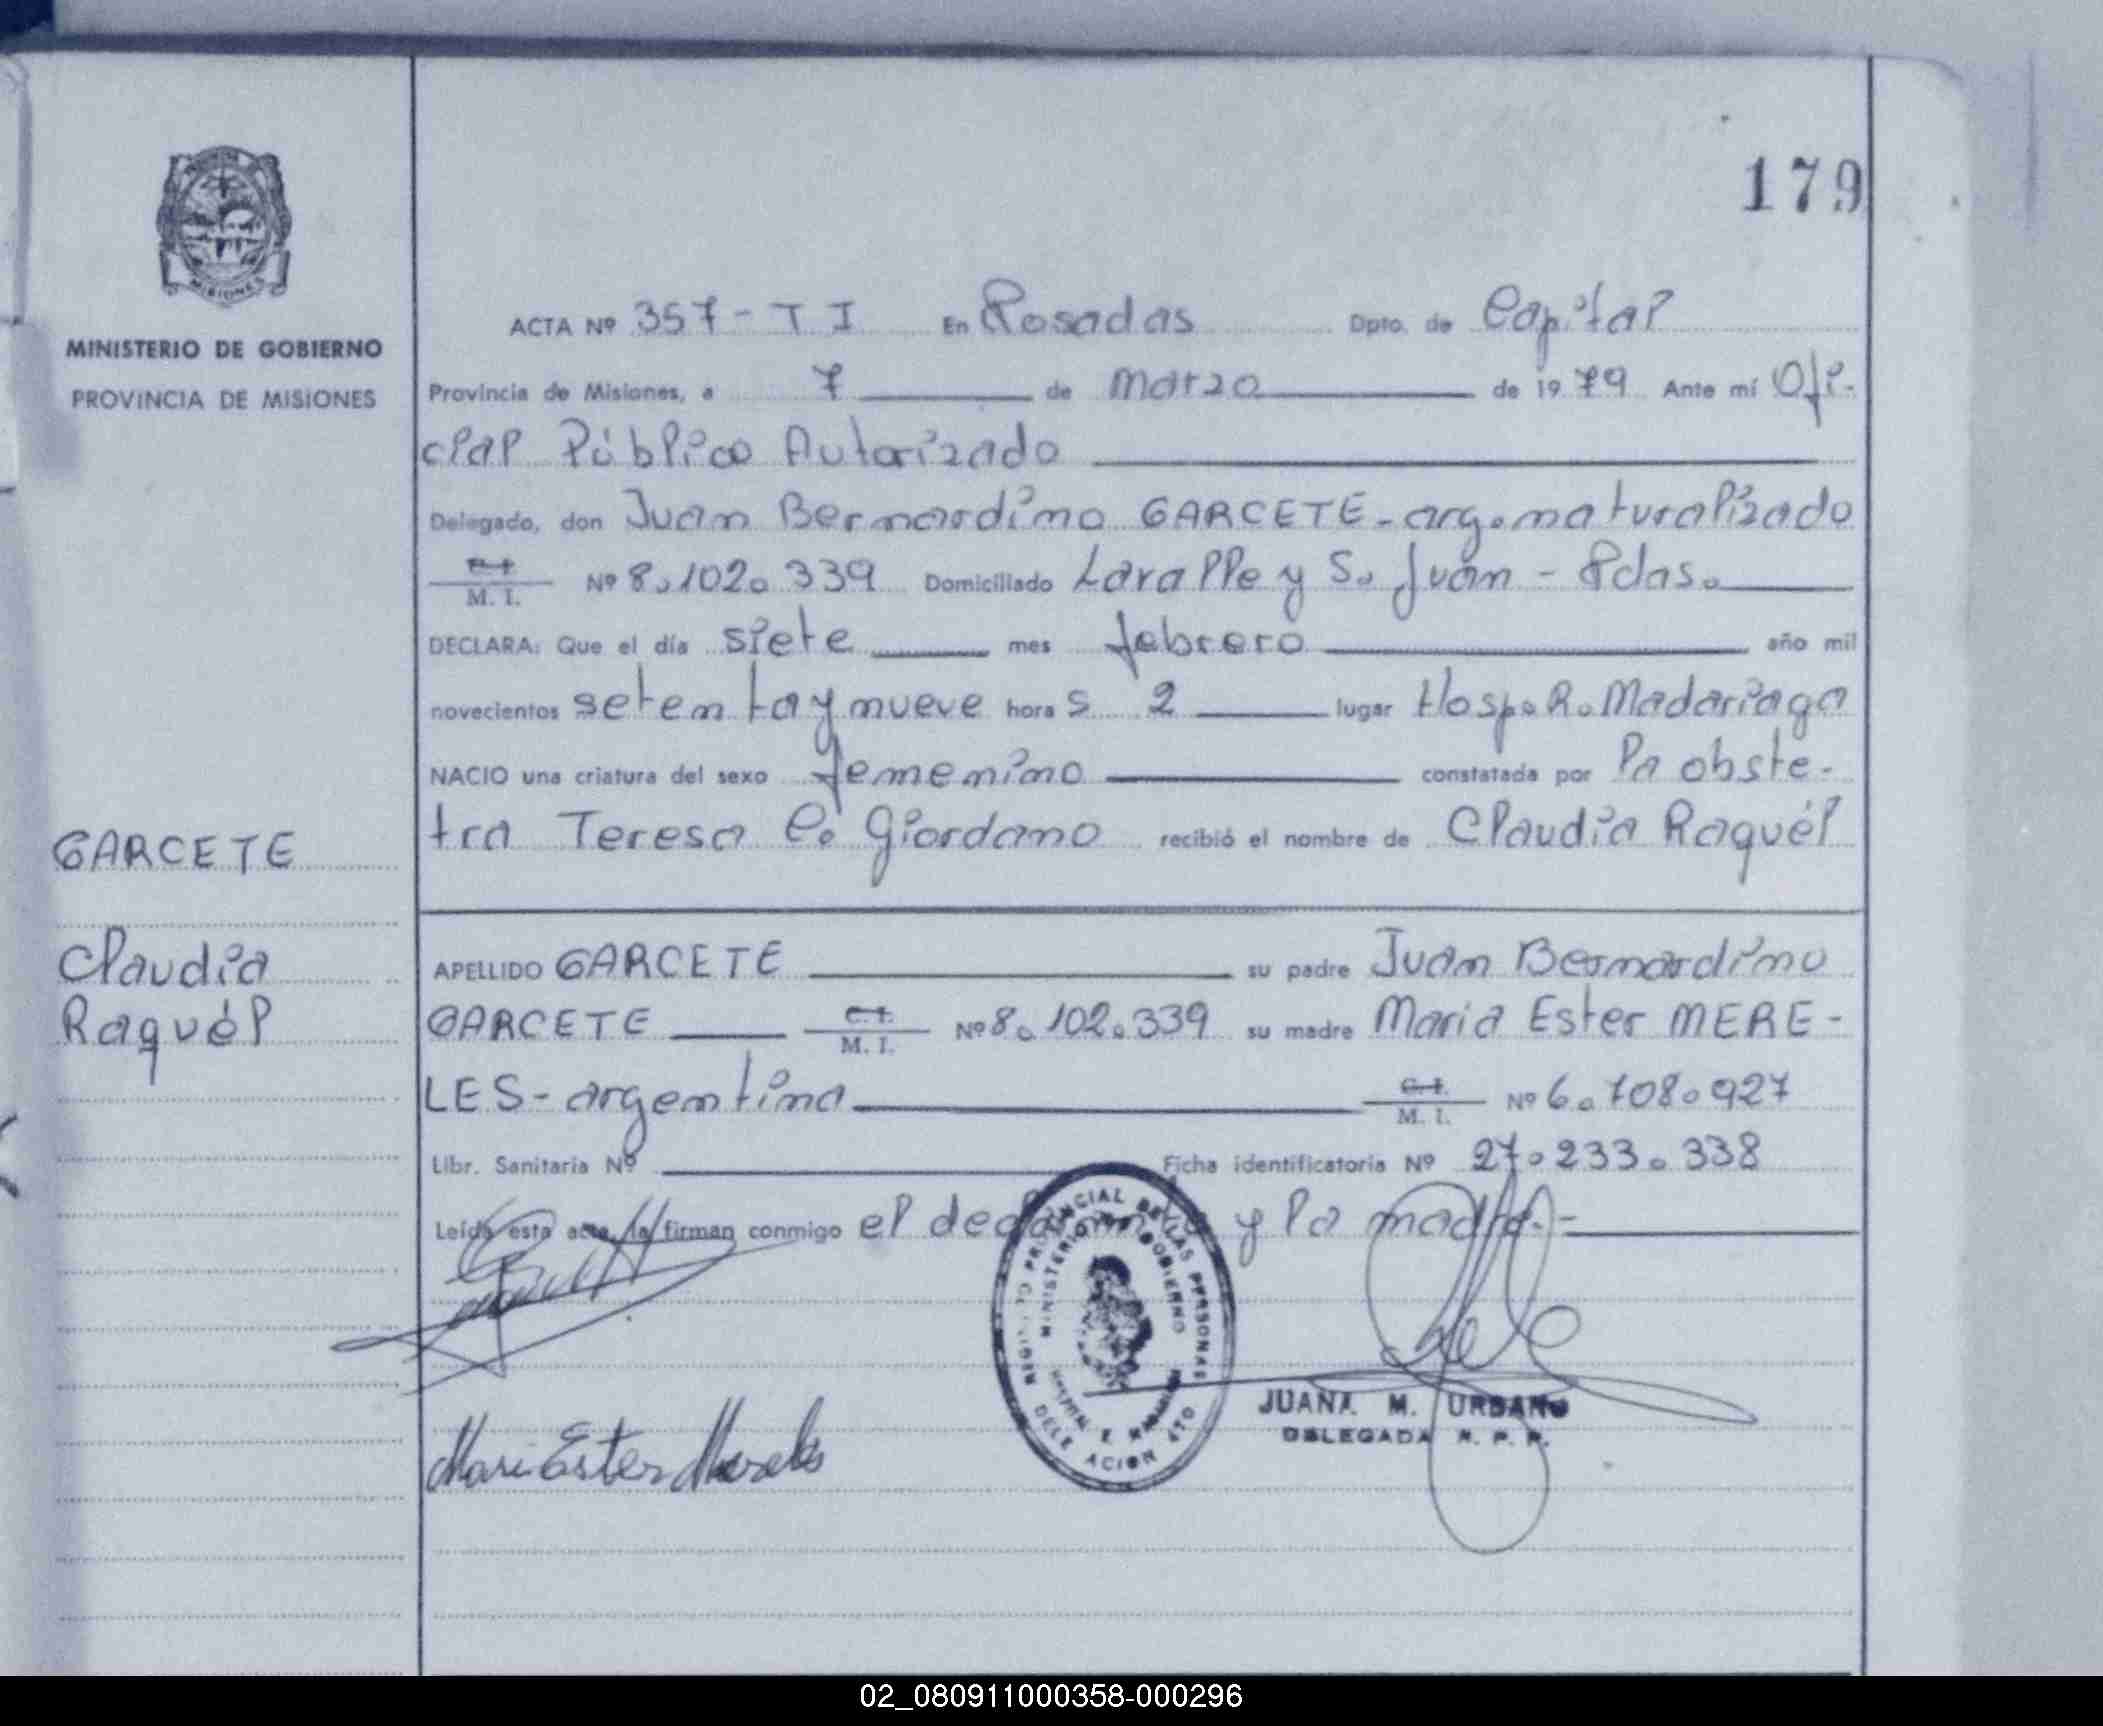 179
MISIONES
MINISTERIO DE GOBIERNO
PROVINCIA DE MISIONES
GARCETE
Claudia
Raquél
ACTA Nº 357-T I En Posadas Dpto. de Capital
Provincia de Misiones, a 7 de marzo de 1979 Ante mí Ofi-
cial Público Autorizado
Delegado, don Juan Bernardino GARCETE - arg. naturalizado
C.I. M. I. Nº 8.102.339 Domiciliado Lavalle y S. Juan - Pdas.
DECLARA: Que el día siete mes febrero año mil
novecientos setenta y nueve hora s 2 lugar Hosp. R. Madariaga
NACIO una criatura del sexo femenino constatada por la obste-
tra Teresa C. Giordano recibió el nombre de Claudia Raquél
APELLIDO GARCETE su padre Juan Bernardino
GARCETE C.I. M. I. Nº 8.102.339 su madre Maria Ester MERE-
LES - argentina C.I. M. I. Nº 6.708.927
Libr. Sanitaria Nº Ficha identificatoria Nº 27.233.338
Leída esta acta, la firman conmigo el declarante y la madre.-
REGISTRO PROVINCIAL DE LAS PERSONAS
MINISTERIO DE GOBIERNO
HOSPITAL
DELEGACION
JUANA M. URBANO
DELEGADA R. P. P.
Mari Ester Mereles
02_080911000358-000296